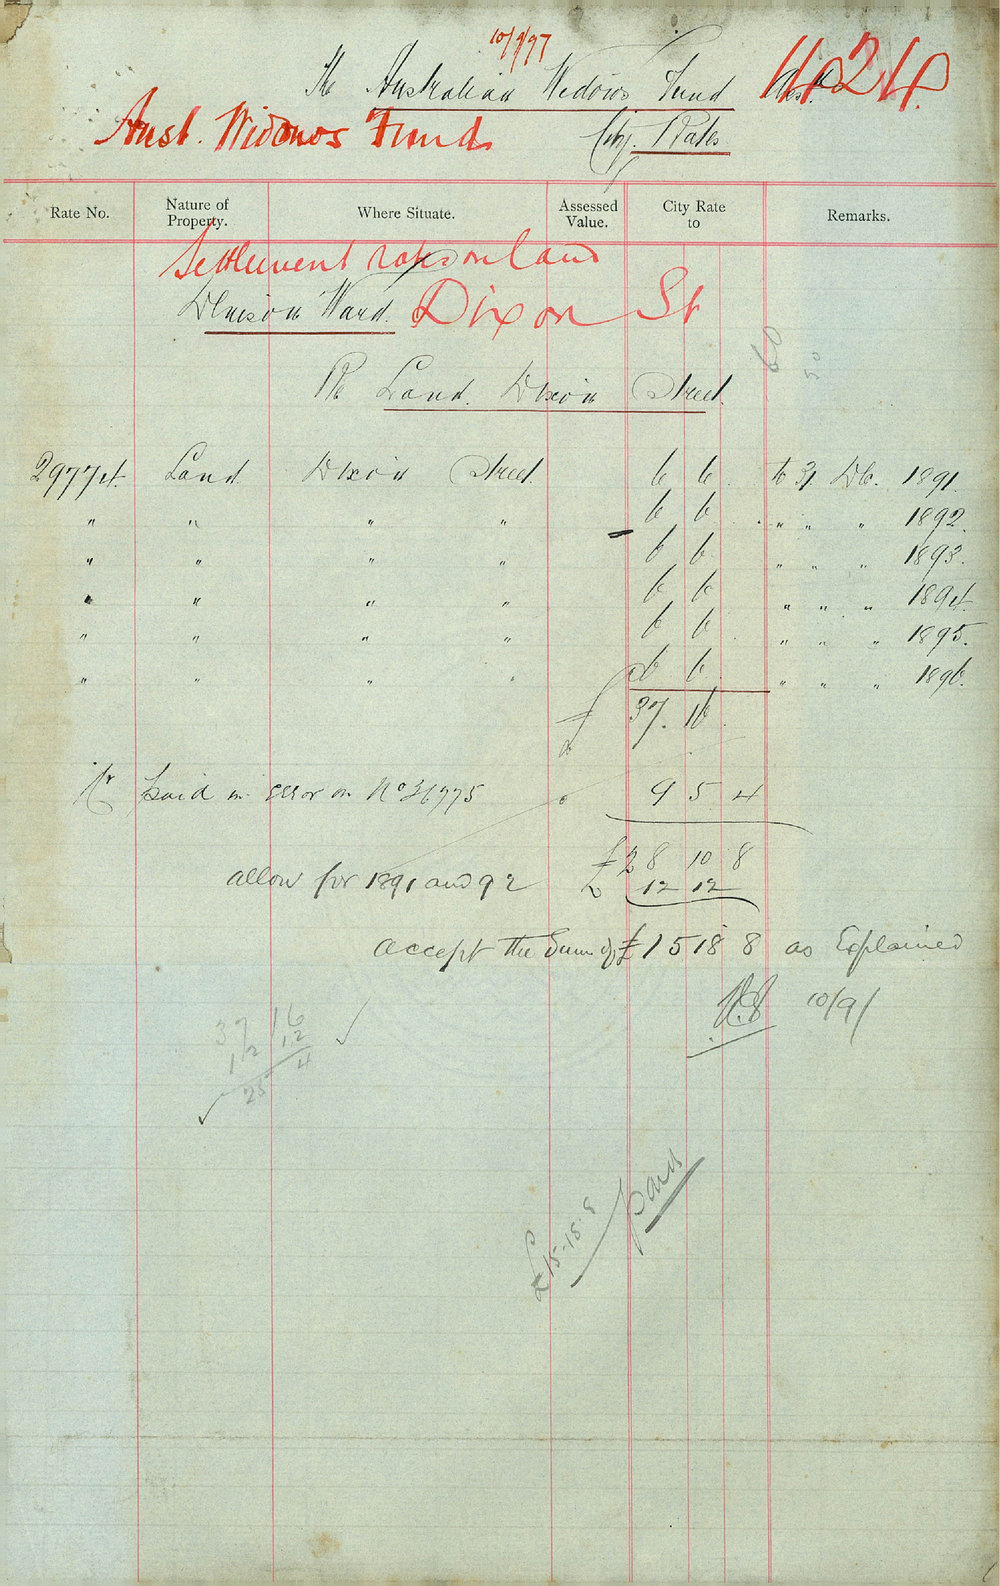 10/9/97
The Australian Widows Fund
1124
Aust. Widows Fund
City Rates
Rate No. Nature of Property. Where Situate. Assessed Value. City Rate to Remarks.
Settlement rates on land
Denison Ward. Dixon St
Re Land. Dixon Street.
60
50
29774 Land Dixon Street. 6 6 to 31 Dec. 1891.
" " " " 6 6 " " " 1892.
" " " " 6 6 " " " 1893.
" " " " 6 6 " " " 1894.
" " " " 6 6 " " " 1895.
" " " " 6 6 " " " 1896.
£ 37. 16
Cr paid in error on No 36775 9 5 4
£28 10 8
allow for 1891 and 92 £ 12 12
accept the Sum of £15 18 8 as Explained
10/9/
37 16
12 12
25 4
£15-18-8 paid